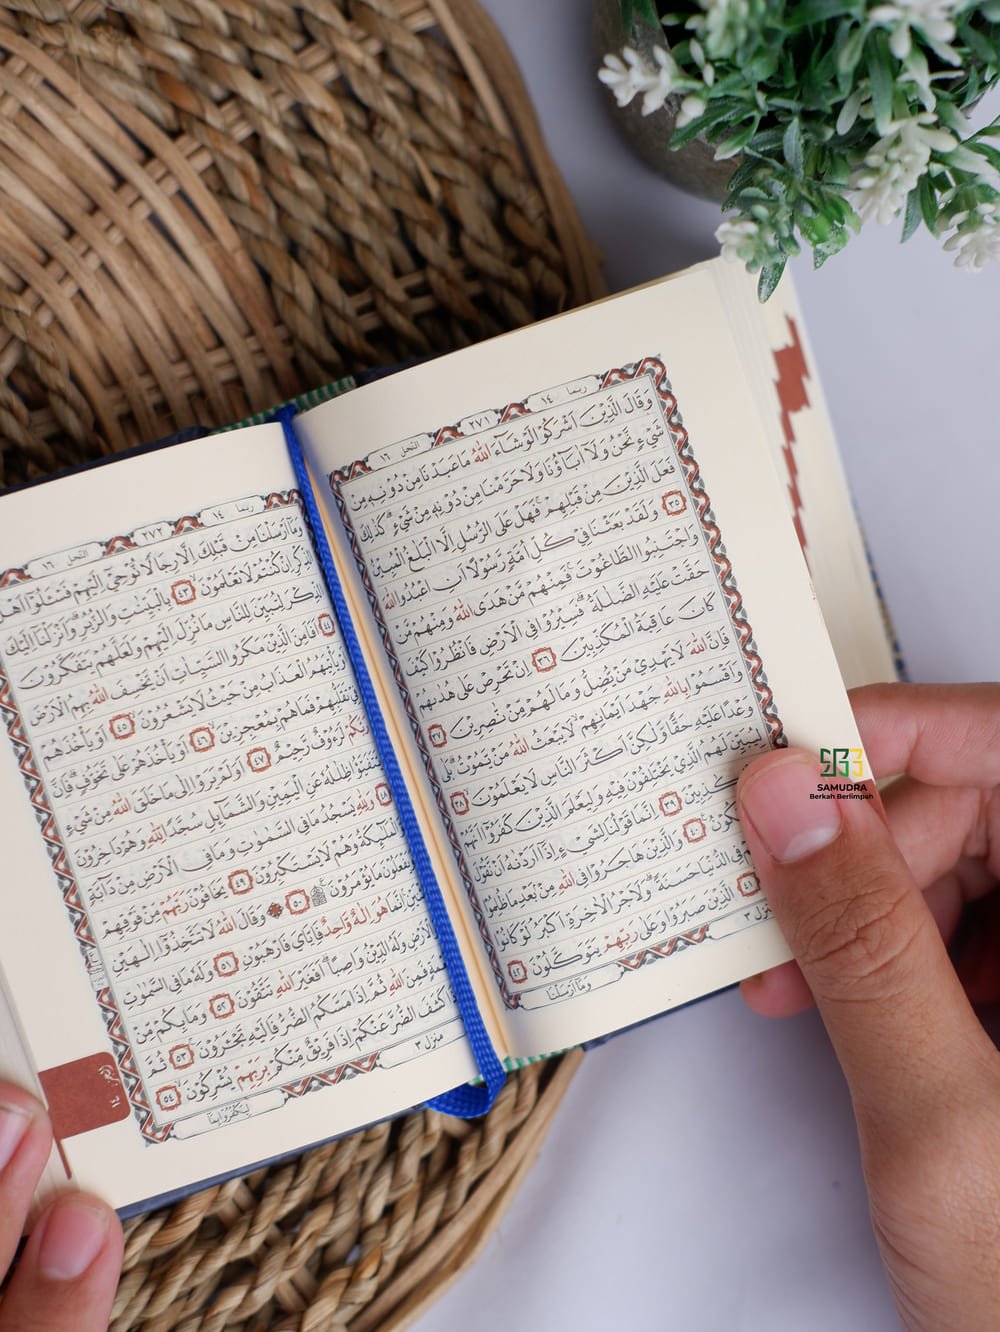 ربما ١٤ ٢٧١ النحل ١٦
وَقَالَ الَّذِيْنَ اَشْرَكُوْا لَوْ شَآءَ اللّٰهُ مَا عَبَدْنَا مِنْ دُوْنِهٖ مِنْ
شَيْءٍ نَّحْنُ وَلَآ اٰبَآؤُنَا وَلَا حَرَّمْنَا مِنْ دُوْنِهٖ مِنْ شَيْءٍ ۗ كَذٰلِكَ
فَعَلَ الَّذِيْنَ مِنْ قَبْلِهِمْ ۚ فَهَلْ عَلَى الرُّسُلِ اِلَّا الْبَلٰغُ الْمُبِيْنُ
٣٥ وَلَقَدْ بَعَثْنَا فِيْ كُلِّ اُمَّةٍ رَّسُوْلًا اَنِ اعْبُدُوا اللّٰهَ
وَاجْتَنِبُوا الطَّاغُوْتَ ۚ فَمِنْهُمْ مَّنْ هَدَى اللّٰهُ وَمِنْهُمْ مَّنْ
حَقَّتْ عَلَيْهِ الضَّلٰلَةُ ۗ فَسِيْرُوْا فِى الْاَرْضِ فَانْظُرُوْا كَيْفَ
كَانَ عَاقِبَةُ الْمُكَذِّبِيْنَ ٣٦ اِنْ تَحْرِصْ عَلٰى هُدٰىهُمْ
فَاِنَّ اللّٰهَ لَا يَهْدِيْ مَنْ يُّضِلُّ وَمَا لَهُمْ مِّنْ نّٰصِرِيْنَ ٣٧
وَاَقْسَمُوْا بِاللّٰهِ جَهْدَ اَيْمَانِهِمْ ۙ لَا يَبْعَثُ اللّٰهُ مَنْ يَّمُوْتُ ۗ بَلٰى
وَعْدًا عَلَيْهِ حَقًّا وَّلٰكِنَّ اَكْثَرَ النَّاسِ لَا يَعْلَمُوْنَ ٣٨
لِيُبَيِّنَ لَهُمُ الَّذِيْ يَخْتَلِفُوْنَ فِيْهِ وَلِيَعْلَمَ الَّذِيْنَ كَفَرُوْٓا اَنَّهُمْ
كٰذِبِيْنَ ٣٩ اِنَّمَا قَوْلُنَا لِشَيْءٍ اِذَآ اَرَدْنٰهُ اَنْ نَّقُوْلَ
٤٠ وَالَّذِيْنَ هَاجَرُوْا فِى اللّٰهِ مِنْۢ بَعْدِ مَا ظُلِمُوْا
فِى الدُّنْيَا حَسَنَةً ۗ وَلَاَجْرُ الْاٰخِرَةِ اَكْبَرُ ۘ لَوْ كَانُوْا
٤١ الَّذِيْنَ صَبَرُوْا وَعَلٰى رَبِّهِمْ يَتَوَكَّلُوْنَ ٤٢
منزل ٣
وَمَآ اَرْسَلْنَا
ربما ١٤ ٢٧٢ النحل ١٦
وَمَآ اَرْسَلْنَا مِنْ قَبْلِكَ اِلَّا رِجَالًا نُّوْحِيْٓ اِلَيْهِمْ فَسْـَٔلُوْٓا اَهْلَ
الذِّكْرِ اِنْ كُنْتُمْ لَا تَعْلَمُوْنَ ٤٣ بِالْبَيِّنٰتِ وَالزُّبُرِ ۗ وَاَنْزَلْنَآ اِلَيْكَ
الذِّكْرَ لِتُبَيِّنَ لِلنَّاسِ مَا نُزِّلَ اِلَيْهِمْ وَلَعَلَّهُمْ يَتَفَكَّرُوْنَ
٤٤ اَفَاَمِنَ الَّذِيْنَ مَكَرُوا السَّيِّاٰتِ اَنْ يَّخْسِفَ اللّٰهُ بِهِمُ الْاَرْضَ
اَوْ يَأْتِيَهُمُ الْعَذَابُ مِنْ حَيْثُ لَا يَشْعُرُوْنَ ٤٥ اَوْ يَأْخُذَهُمْ
فِيْ تَقَلُّبِهِمْ فَمَا هُمْ بِمُعْجِزِيْنَ ٤٦ اَوْ يَأْخُذَهُمْ عَلٰى تَخَوُّفٍ ۗ فَاِنَّ
رَبَّكُمْ لَرَءُوْفٌ رَّحِيْمٌ ٤٧ اَوَلَمْ يَرَوْا اِلٰى مَا خَلَقَ اللّٰهُ مِنْ شَيْءٍ
يَّتَفَيَّؤُا ظِلٰلُهٗ عَنِ الْيَمِيْنِ وَالشَّمَآئِلِ سُجَّدًا لِّلّٰهِ وَهُمْ دَاخِرُوْنَ
٤٨ وَلِلّٰهِ يَسْجُدُ مَا فِى السَّمٰوٰتِ وَمَا فِى الْاَرْضِ مِنْ دَآبَّةٍ
وَّالْمَلٰٓئِكَةُ وَهُمْ لَا يَسْتَكْبِرُوْنَ ٤٩ يَخَافُوْنَ رَبَّهُمْ مِّنْ فَوْقِهِمْ
وَيَفْعَلُوْنَ مَا يُؤْمَرُوْنَ ۩ ٥٠ ۞ وَقَالَ اللّٰهُ لَا تَتَّخِذُوْٓا اِلٰهَيْنِ
اثْنَيْنِ ۚ اِنَّمَا هُوَ اِلٰهٌ وَّاحِدٌ فَاِيَّايَ فَارْهَبُوْنِ ٥١ وَلَهٗ مَا فِى السَّمٰوٰتِ
وَالْاَرْضِ وَلَهُ الدِّيْنُ وَاصِبًا ۗ اَفَغَيْرَ اللّٰهِ تَتَّقُوْنَ ٥٢ وَمَا بِكُمْ مِّنْ
نِّعْمَةٍ فَمِنَ اللّٰهِ ثُمَّ اِذَا مَسَّكُمُ الضُّرُّ فَاِلَيْهِ تَجْـَٔرُوْنَ ٥٣ ثُمَّ
اِذَا كَشَفَ الضُّرَّ عَنْكُمْ اِذَا فَرِيْقٌ مِّنْكُمْ بِرَبِّهِمْ يُشْرِكُوْنَ ٥٤
منزل ٣
لِيَكْفُرُوْا بِمَآ
١٤
SAMUDRA
Berkah Berlimpah